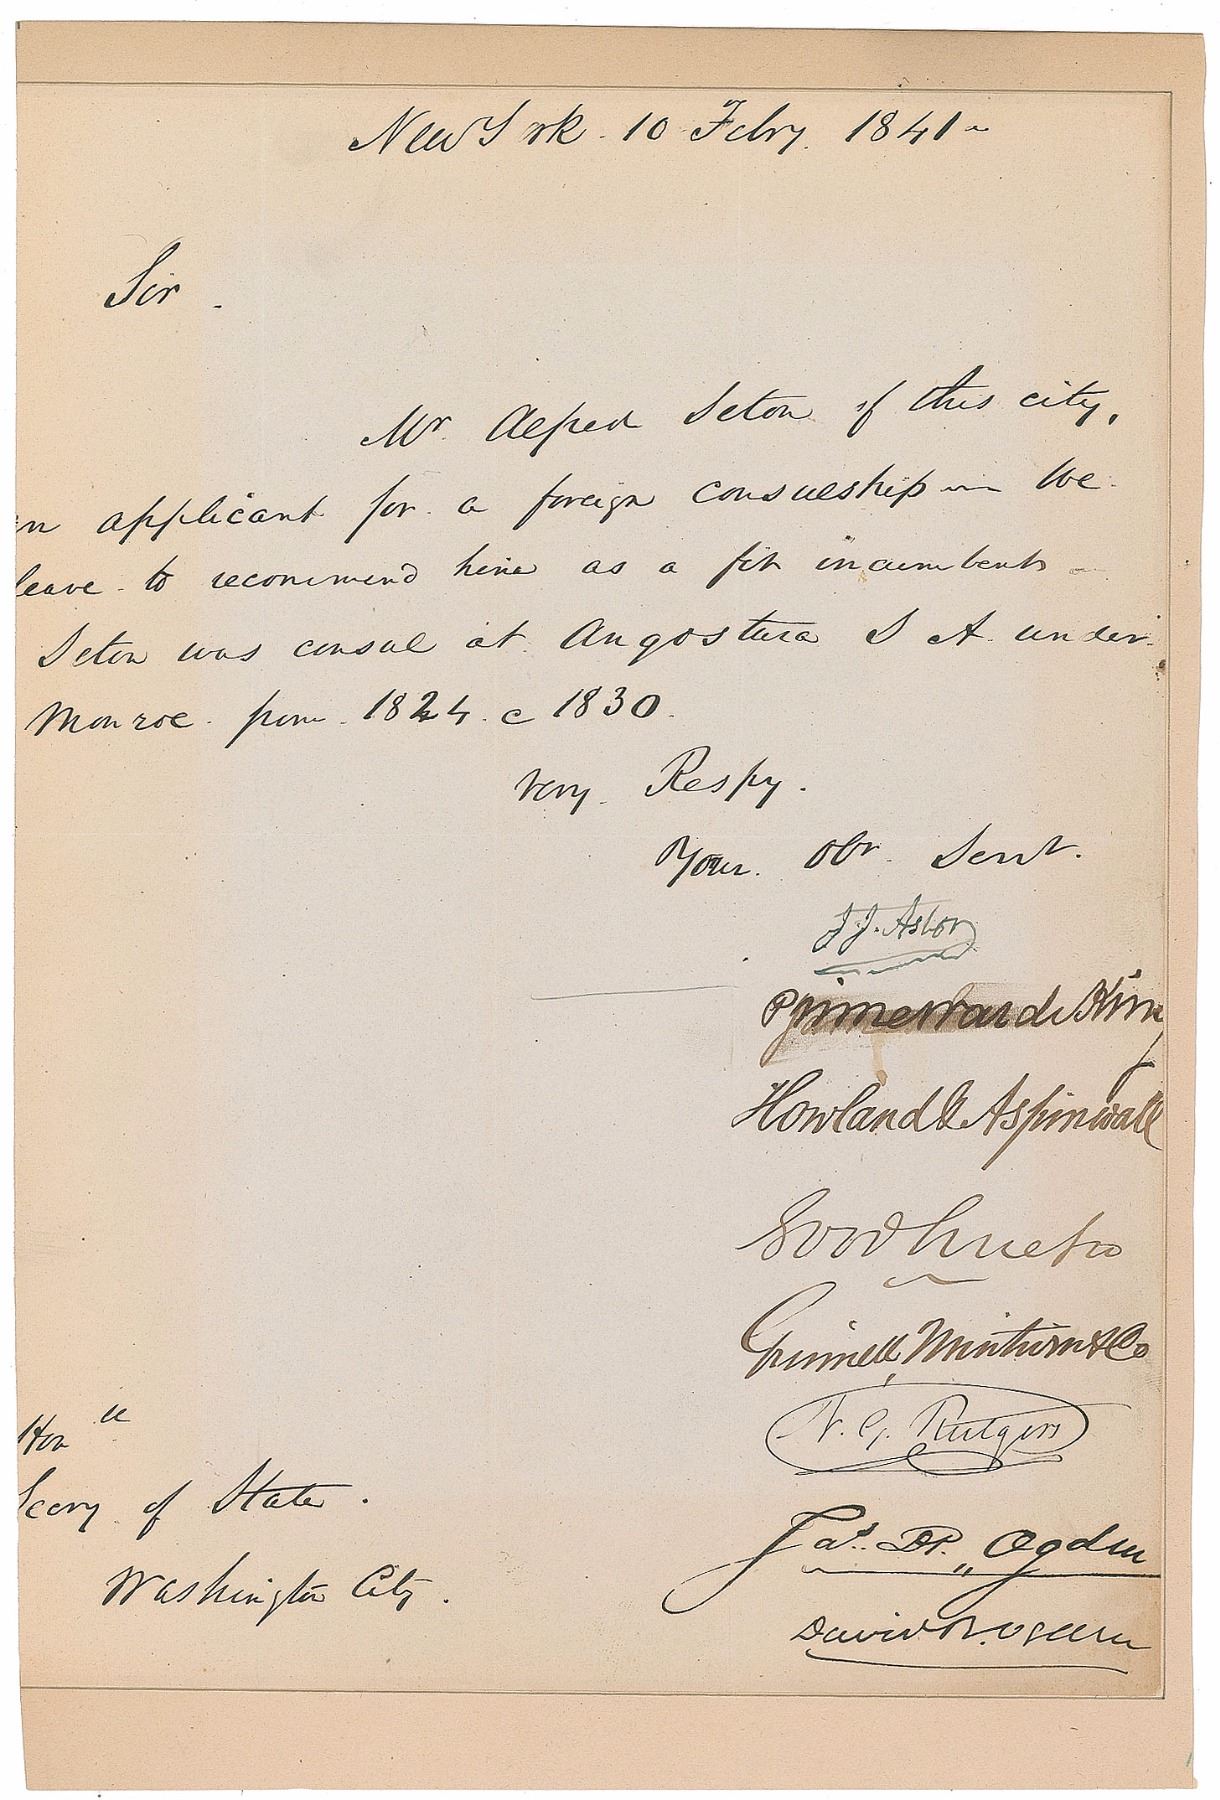 New York. 10 Febry. 1841
Sir.
Mr. Alfred Seton of this city,
n applicant for a foreign consulship — We
leave to recommend him as a fit incumbent
Seton was consul at Angostura S A under
Monroe from 1824 c 1830.
Very Respy.
Your. Obt. Servt.
J. J. Astor
Prime Ward & King
Howland & Aspinwall
Goodhue & Co
Grinnell, Minturn & Co
N. G. Rutgers
Jas. D. P. Ogden
David Ogden
Honll
Secry of State.
Washington City.